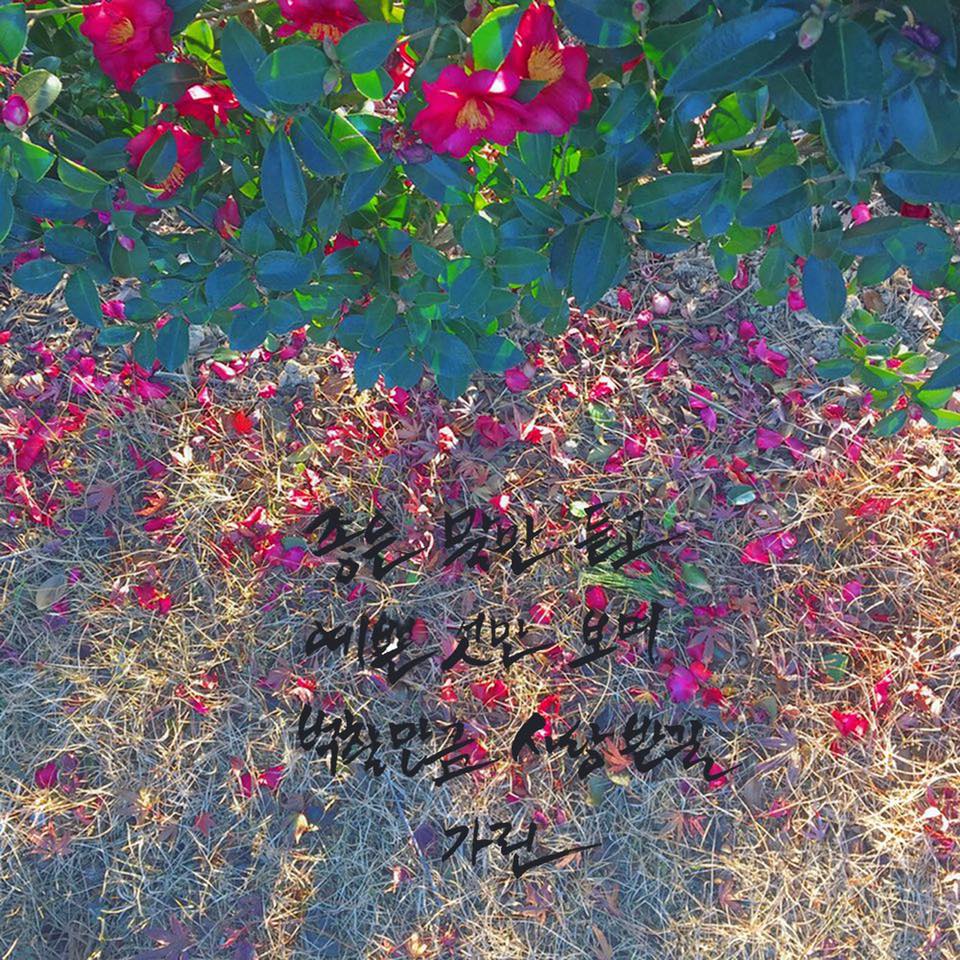 좋은 것만 듣고
예쁜 것만 보며
벅찰만큼 사랑받길
가린